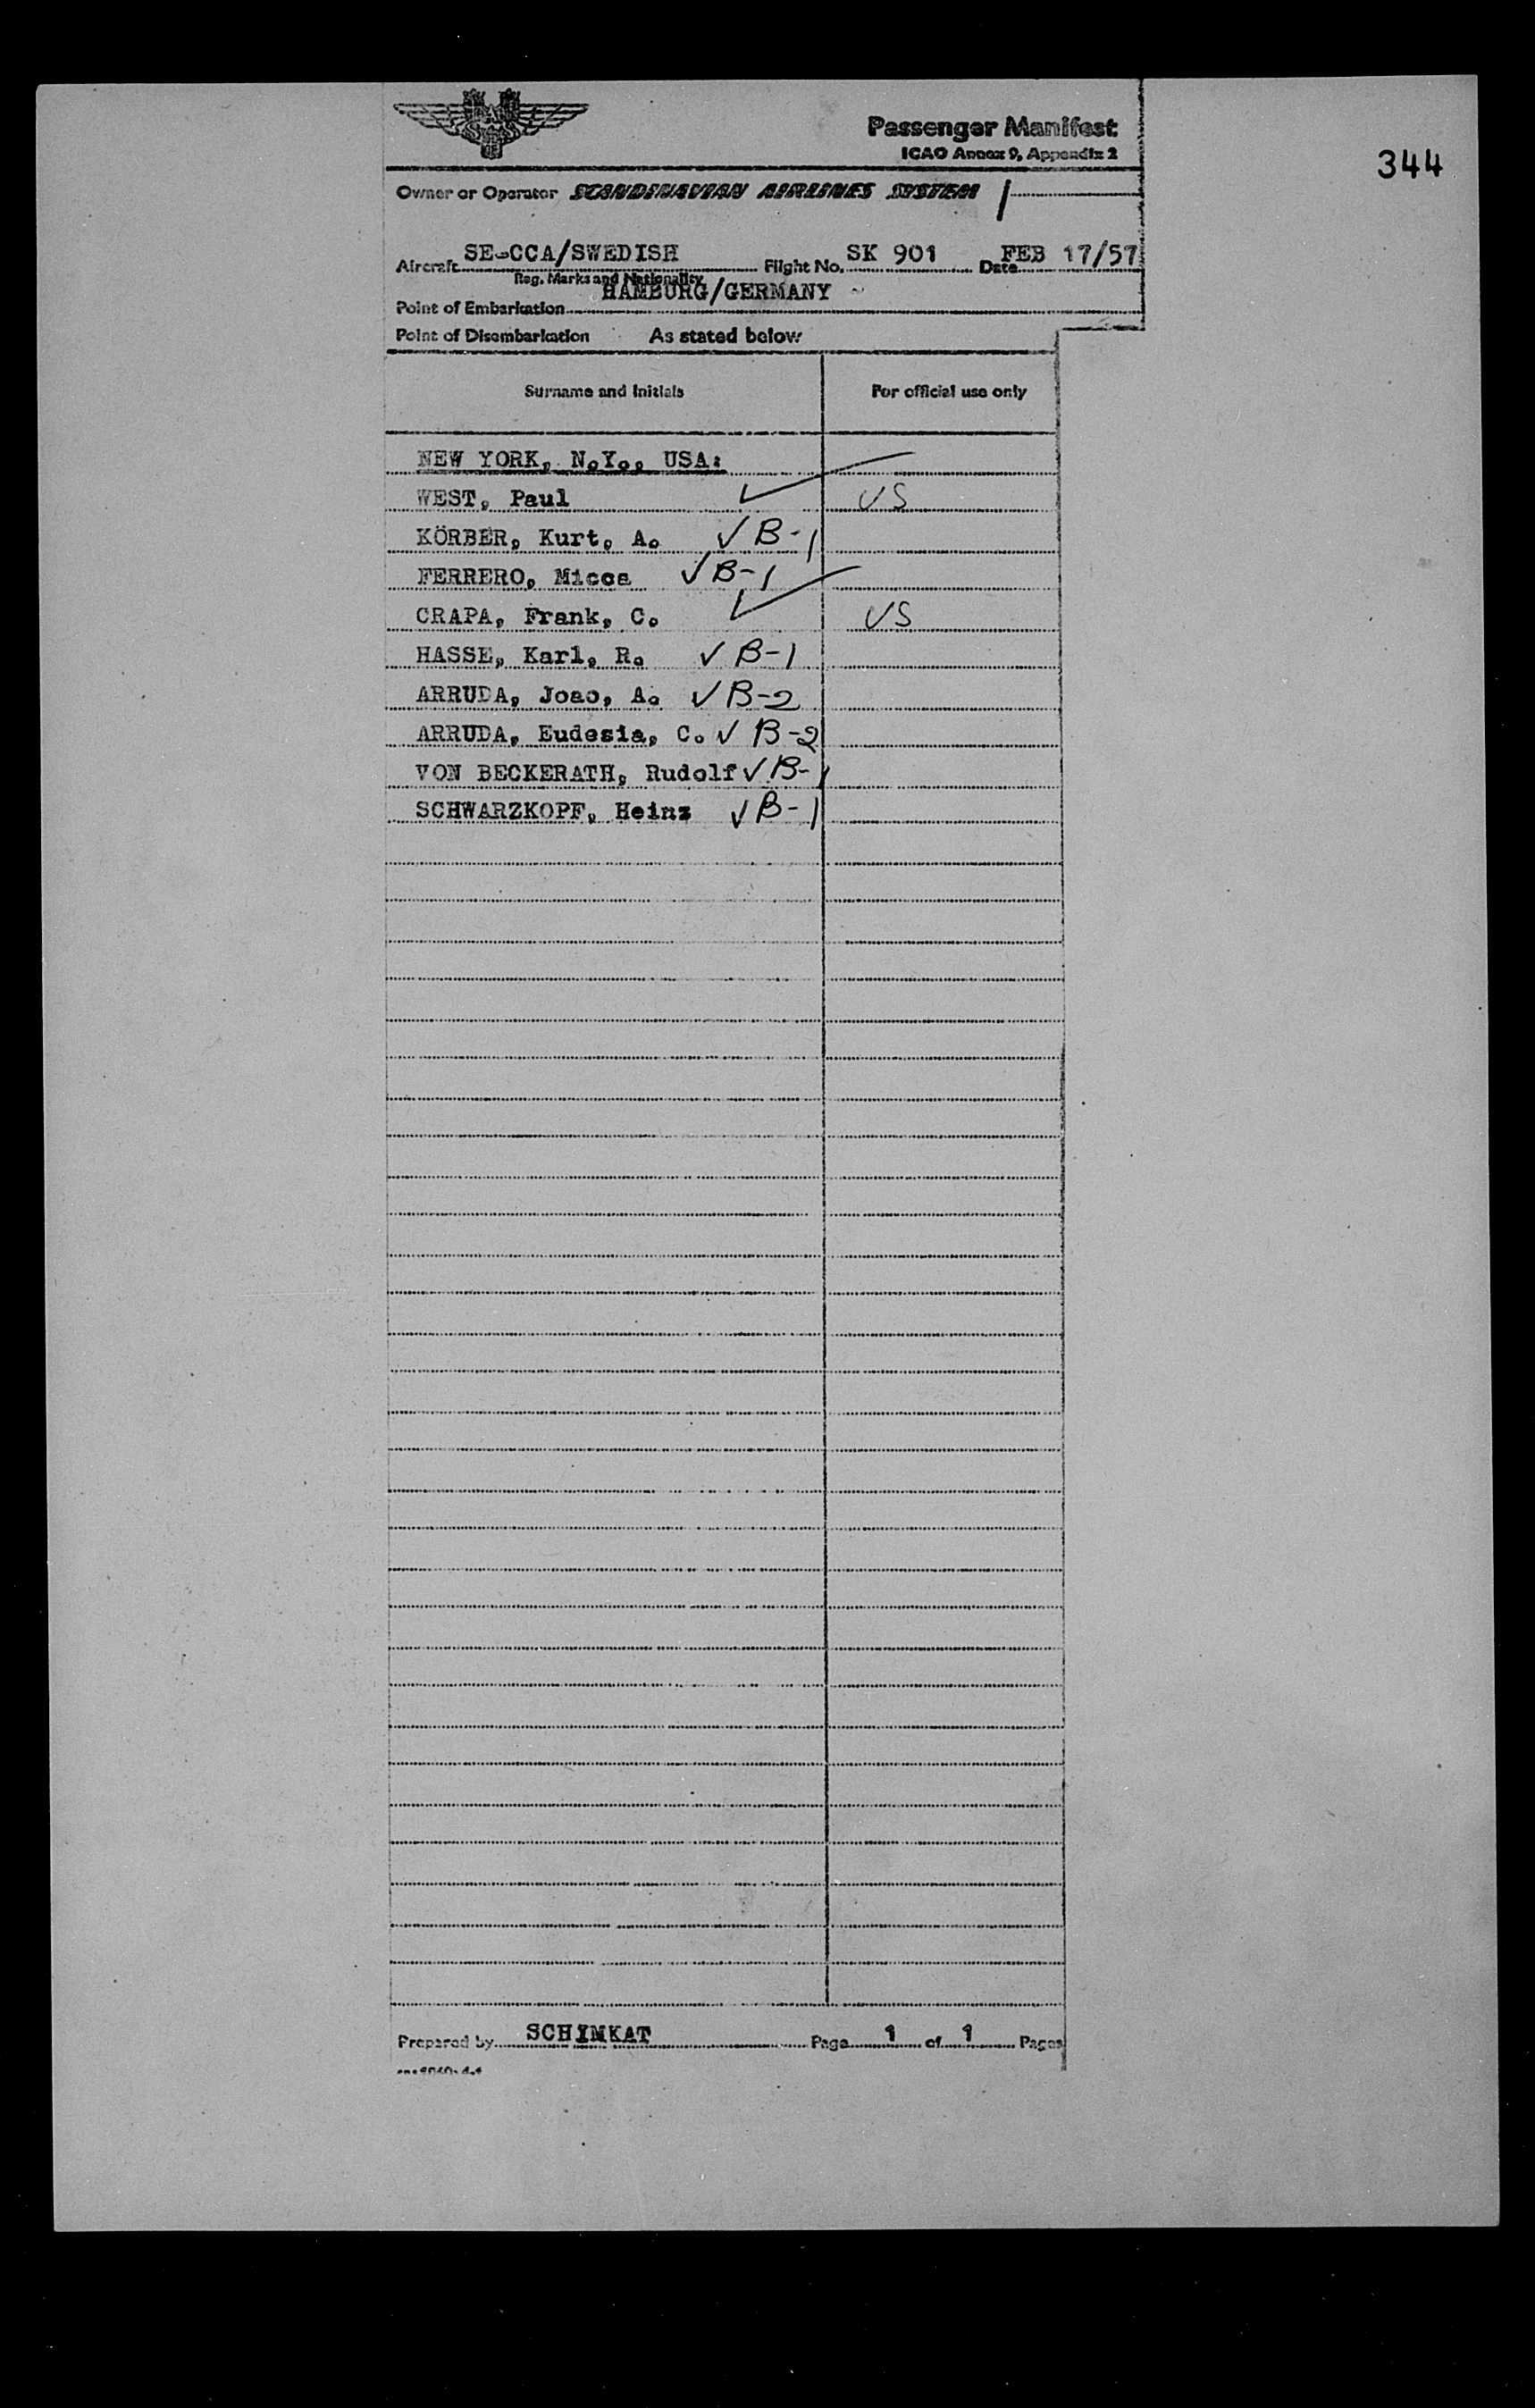 Passenger Manifest
ICAO Annex 9, Appendix 2
344
Owner or Operator SCANDINAVIAN AIRLINES SYSTEM
Aircraft SE-CCA/SWEDISH Flight No. SK 901 Date FEB 17/57
Reg. Marks and Nationality
Point of Embarkation HAMBURG/GERMANY
Point of Disembarkation As stated below
Surname and Initials For official use only
NEW YORK, N.Y., USA:
WEST, Paul ✓ US
KÖRBER, Kurt, A. ✓ B-1
FERRERO, Micca ✓ B-1
CRAPA, Frank, C. ✓ US
HASSE, Karl, R. ✓ B-1
ARRUDA, Joao, A. ✓ B-2
ARRUDA, Eudesia, C. ✓ B-2
VON BECKERATH, Rudolf ✓ B-1
SCHWARZKOPF, Heinz ✓ B-1
Prepared by SCHIMKAT Page 1 of 1 Pages